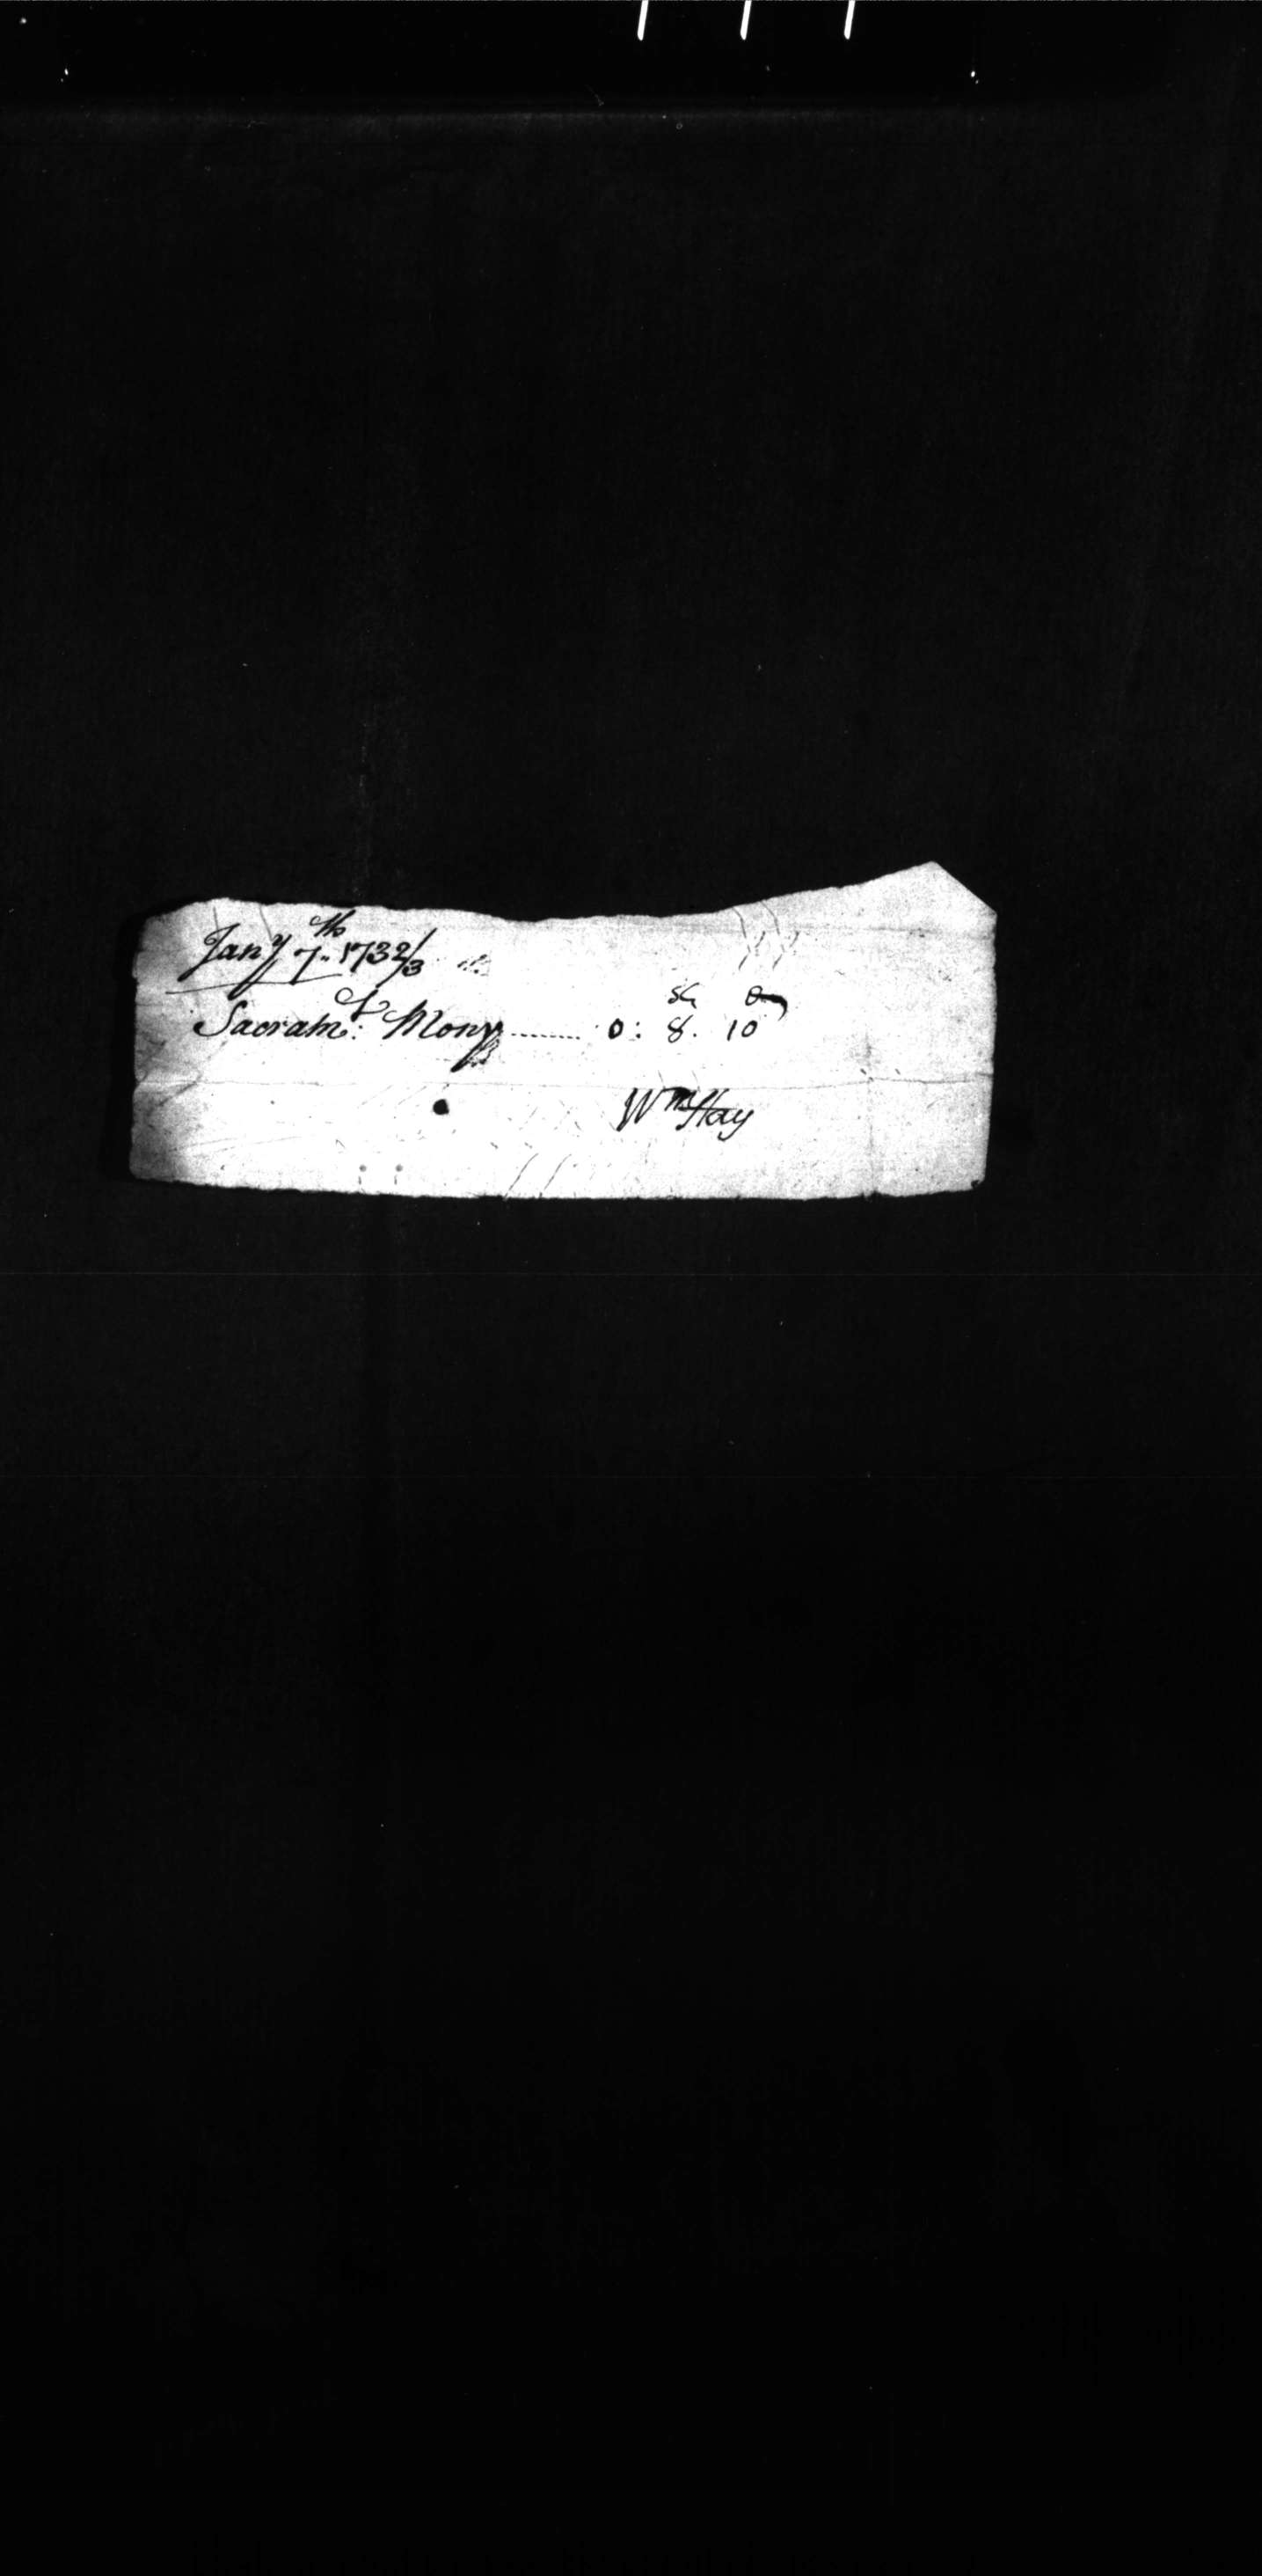 Jany 7th 1732/3
sh d
Sacramt: Mony ......... 0: 8. 10
Wm Hay